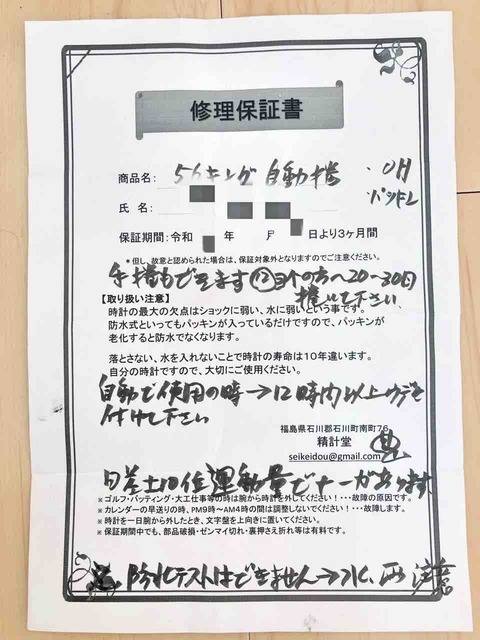 修理保証書
商品名: 56キング 自動巻 ・OH
・パッキン
氏 名:
保証期間:令和 年 月 日より3ヶ月間
*但し、故意と認められた場合は、保証対象外となりますのでご注意ください。
手巻もできます⑫時の方へ20~30回
巻いて下さい
【取り扱い注意】
時計の最大の欠点はショックに弱い、水に弱いという事です。
防水式といってもパッキンが入っているだけですので、パッキンが
老化すると防水でなくなります。
落とさない、水を入れないことで時計の寿命は10年違います。
自分の時計ですので、大切にご使用ください。
自動で使用の時→12時間以上ウデを
付けて下さい
福島県石川郡石川町南町76
精計堂
seikeidou@gmail.com
日差±10位 運動量で+-があります
※ゴルフ・バッティング・大工仕事等の時は腕から時計を外してください!・・・故障の原因です。
※カレンダーの早送りの時、PM9時~AM4時の間は調整しないでください!・・・故障します。
※時計を一日腕から外したとき、文字盤を上向きに置いてください。
※保証期間中でも、部品破損・ゼンマイ切れ・裏押さえ折れ等は有料です。
防水テストはできません→水、雨 注意